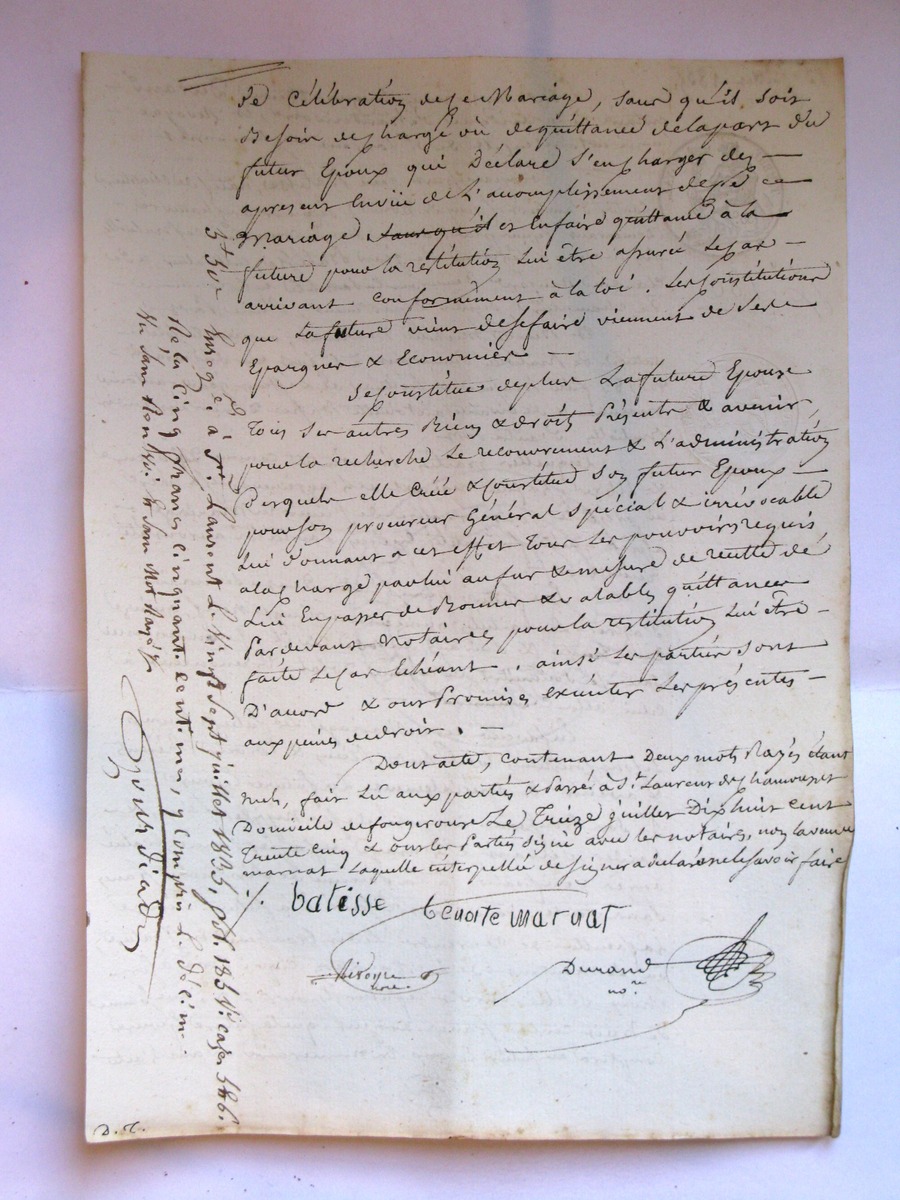 de Célébration de ce Mariage, sans qu'il soit
Besoin de charge ou de quittance de la part du
futur Epoux qui Déclare s'en charger des —
apresent en vüe de L'acomplissement de ce
Mariage sans qu'il et en faire quittance à la
future pour la restitution Lui être assuré Le cas —
arrivant conformément à la loi. Les Constitutions
que La future vient de se faire viennent de Ses
Epargnes & Economies —
Se Constitue de plus La future Epouse
Tous Ses autres Biens & droits Présents & avenir,
pour la recherche Le recouvrement & L'administration
Desquels elle Créé & Constitue Son futur Epoux —
pour son procureur Général spécial & irrévocable
Lui donnant a cet effet Tous Les pouvoirs requis
a la charge par lui au fur & mesure de recette de
Lui En passer de Bonnes & valables quittances
Par devant Notaires pour la restitution Lui être —
faite Le Cas Echéant. ainsi Les parties sont
D'acord & ont Promis exécuter Les présentes —
aux peines de droit. —
Dont acte, contenant Deux mots Rayés étant
nuls, fait Lû aux parties & Passé à St. Laurent de Chamousset
Domicile de fougerouse Le Treize juillet Dix huit cent
Trente Cinq & ont les Parties signé avec les notaires, non la veuve
marnat Laquelle interpellée de signer a déclaré ne le savoir faire
./. batisse benoite marnat
Durand
nore.
nore.
Enregé. à St. Laurent Le Vingt Sept juillet 1835, fol. 183 Vo. cases 5 & 6.
Reçu Cinq francs Cinquante centimes, y Compris Le décime.
D. C.